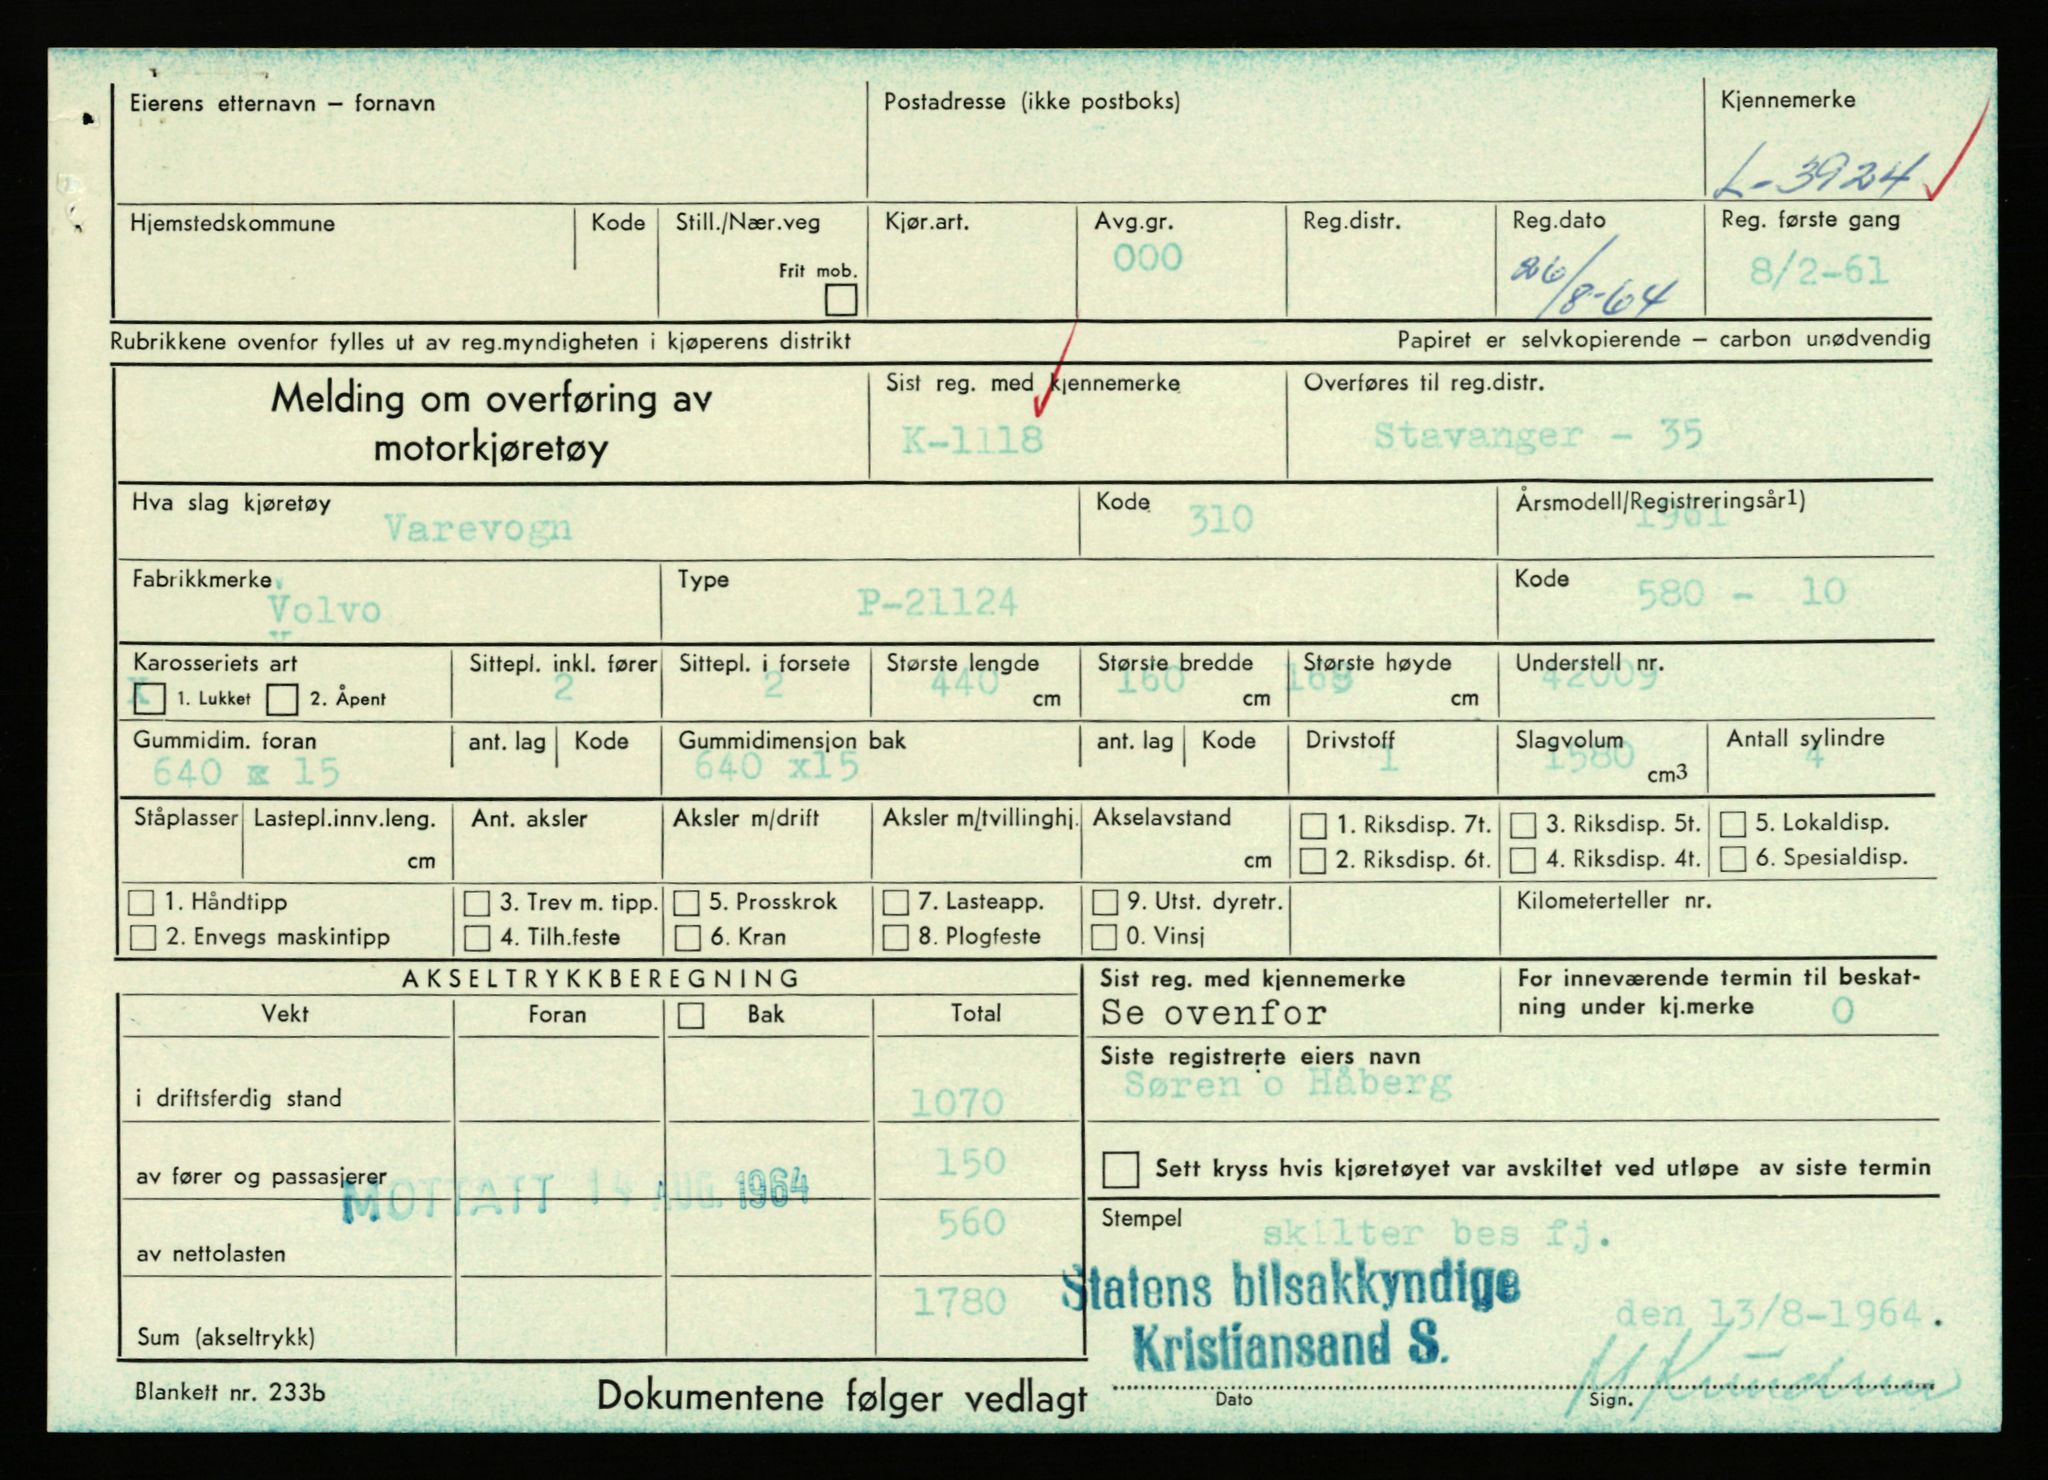 Eierens etternavn – fornavn
Postadresse (ikke postboks)
Kjennemerke
L-3924
Hjemstedskommune
Kode
Still./Nær.veg
Frit mob.
Kjør.art.
Avg.gr.
000
Reg.distr.
Reg.dato
26/8-64
Reg. første gang
8/2-61
Rubrikkene ovenfor fylles ut av reg.myndigheten i kjøperens distrikt
Papiret er selvkopierende – carbon unødvendig
Melding om overføring av
motorkjøretøy
Sist reg. med kjennemerke
K-1118
Overføres til reg.distr.
Stavanger - 35
Hva slag kjøretøy
Varevogn
Kode
310
Årsmodell/Registreringsår1)
1961
Fabrikkmerke
Volvo
Type
P-21124
Kode
580 - 10
Karosseriets art
X 1. Lukket 2. Åpent
Sittepl. inkl. fører
2
Sittepl. i forsete
2
Største lengde
440 cm
Største bredde
160 cm
Største høyde
cm
Understell nr.
42009
Gummidim. foran
640 x 15
ant. lag
Kode
Gummidimensjon bak
640 x15
ant. lag
Kode
Drivstoff
1
Slagvolum
1580 cm3
Antall sylindre
4
Ståplasser
Lastepl.innv.leng.
cm
Ant. aksler
Aksler m/drift
Aksler m/tvillinghj.
Akselavstand
cm
1. Riksdisp. 7t.
2. Riksdisp. 6t.
3. Riksdisp. 5t.
4. Riksdisp. 4t.
5. Lokaldisp.
6. Spesialdisp.
1. Håndtipp
2. Envegs maskintipp
3. Trev m. tipp.
4. Tilh.feste
5. Prosskrok
6. Kran
7. Lasteapp.
8. Plogfeste
9. Utst. dyretr.
0. Vinsj
Kilometerteller nr.
AKSELTRYKKBEREGNING
Vekt
Foran
Bak
Total
i driftsferdig stand
1070
av fører og passasjerer
150
MOTTATT 14 AUG. 1964
av nettolasten
560
Sum (akseltrykk)
1780
Sist reg. med kjennemerke
Se ovenfor
For inneværende termin til beskat-
ning under kj.merke
0
Siste registrerte eiers navn
Søren o Håberg
Sett kryss hvis kjøretøyet var avskiltet ved utløpe av siste termin
Stempel
skilter bes fj.
Statens bilsakkyndige
Kristiansand S.
den 13/8-1964.
Dato
Sign.
Blankett nr. 233b
Dokumentene følger vedlagt